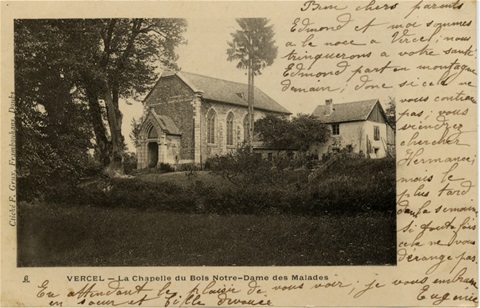 Bien chers parents
Edmond et moi sommes
a la noce a Vercel, nous
trinquerons a votre santé
Edmond part en montagne
demain; donc si cela ne
vous contrarie
pas, vous
viendrez
chercher
Hermance;
mais le
plus tard
dans la semaine
si toutefois
cela ne vous
dérange pas.
En attendant le plaisir de vous voir, je vous embrasse
en sœur et fille dévouée
Eugénie
Cliché E. Gros, Doubs
VERCEL – La Chapelle du Bois Notre-Dame des Malades